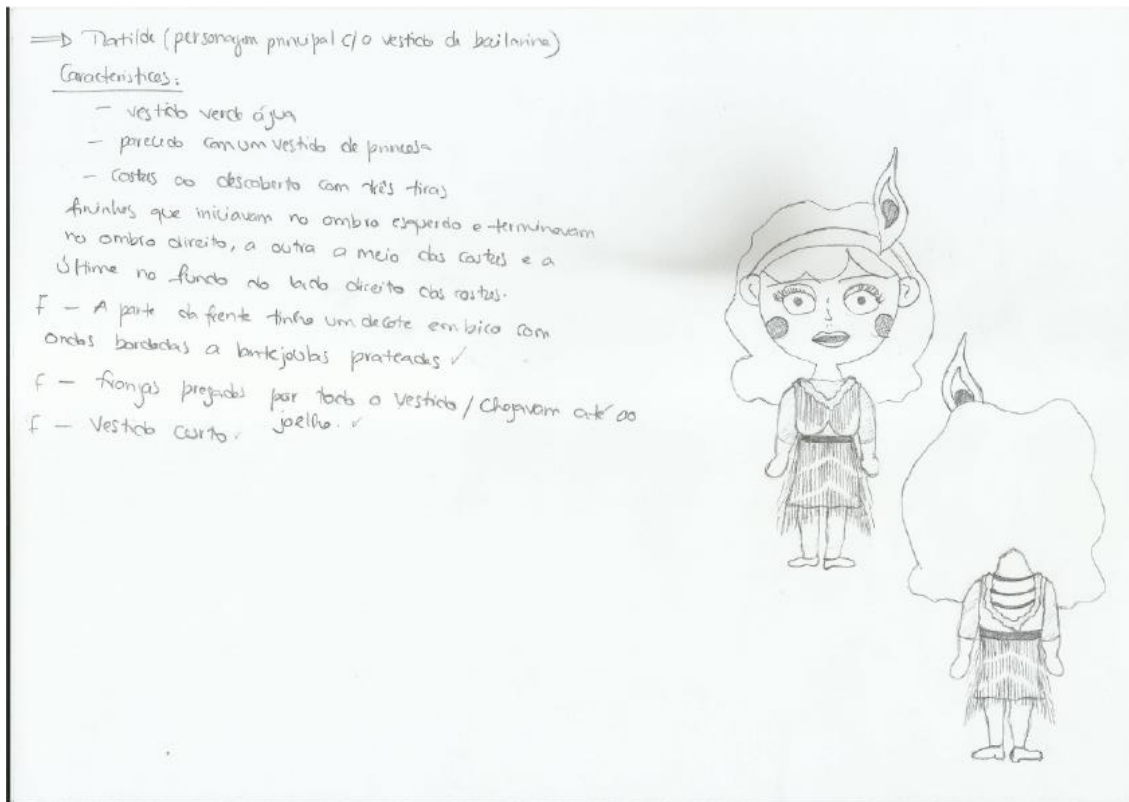 => Matilde (personagem principal c/o vestido de bailarina)
Características:
- vestido verde água
- parecido com um vestido de princesa
- Costas ao descoberto com três tiras
fininhas que iniciavam no ombro esquerdo e terminavam
no ombro direito, a outra a meio das costas e a
última no fundo do lado direito das costas.
F - A parte da frente tinha um decote em bico com
ondas bordadas a lantejoulas prateadas ✓
F - franjas pregadas por todo o vestido / Chegavam até ao
joelho. ✓
F - Vestido curto ✓